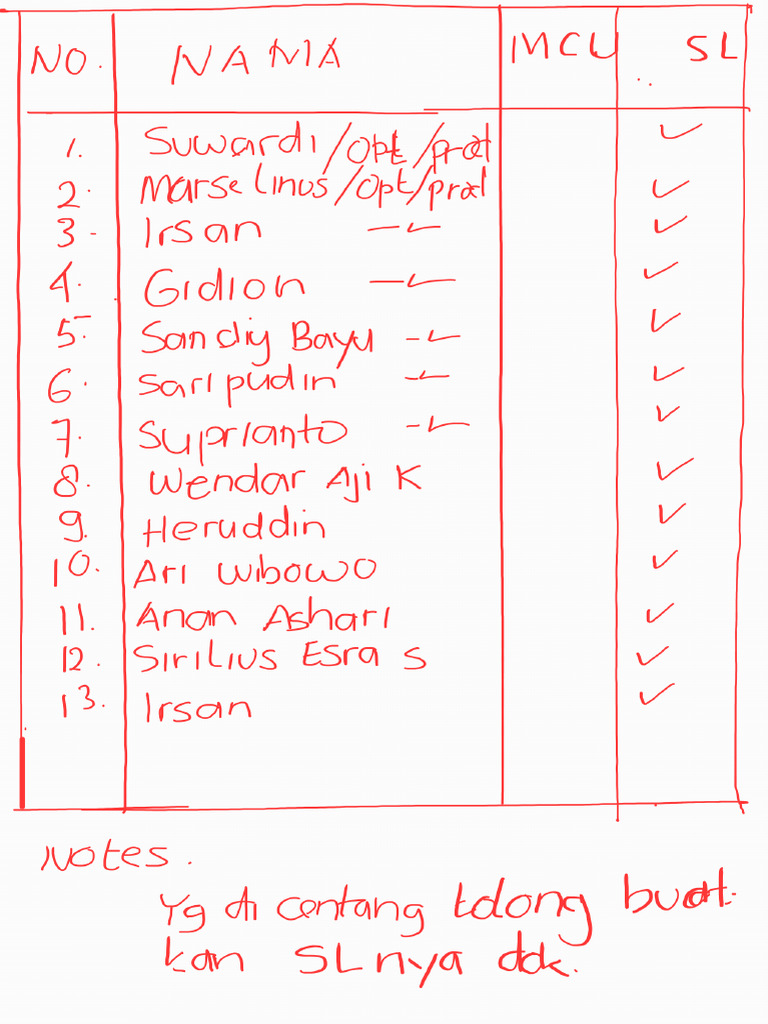 NO. NAMA MCU SL
1. Suwardi/Opt/prod ✓
2. Marselinus/Opt/prod ✓
3. Irsan —〃— ✓
4. Gidion —〃— ✓
5. Sandiy Bayu -〃- ✓
6. Saripudin -〃- ✓
7. Suprianto -〃- ✓
8. Wendar Aji K ✓
9. Heruddin ✓
10. Ari Wibowo ✓
11. Anan Ashari ✓
12. Sirilius Esra S ✓
13. Irsan ✓
Notes.
Yg di centang tolong buat
kan SLnya